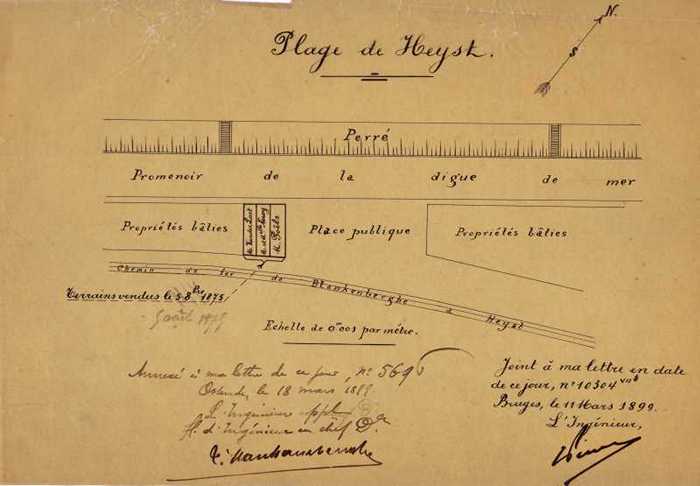 N.
S
Plage de Heyst.
Perré
Promenoir de la digue de mer
Propriétés bâties
Place publique
Propriétés bâties
Chemin de fer de Blankenberghe à Heyst
Terrains vendus le 5 8bre 1875
Echelle de 0m001 par mètre.
Annexé à ma lettre de ce jour, n° 569
Ostende, le 18 mars 1899
L'Ingénieur ppl
ff. d'Ingénieur en chef Dr
Joint à ma lettre en date
de ce jour, n° 10304
Bruges, le 11 Mars 1899.
L'Ingénieur,